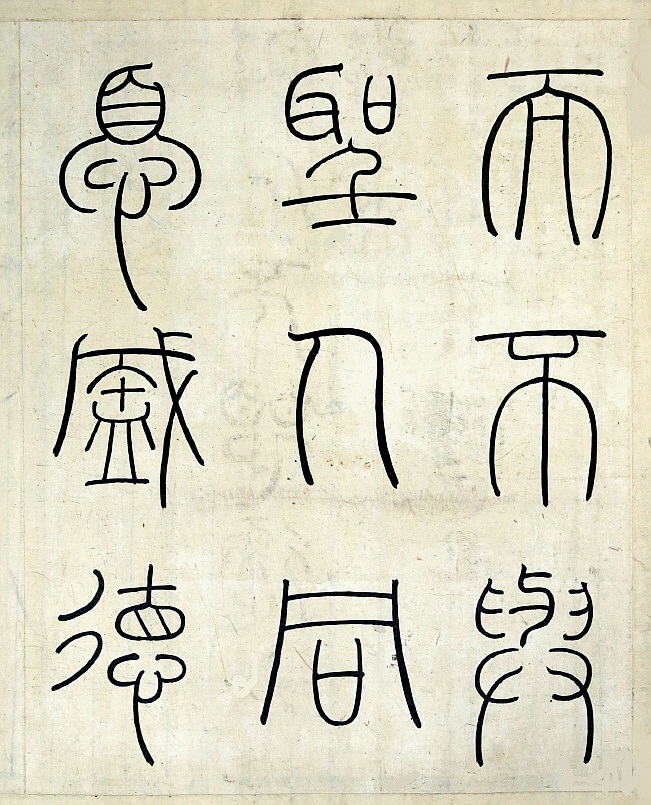 而不與
聖人同
憂盛德